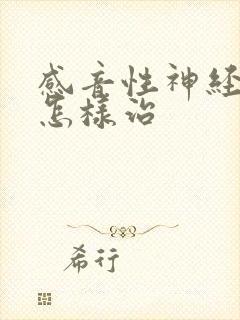 感音性神经
怎样治
希行